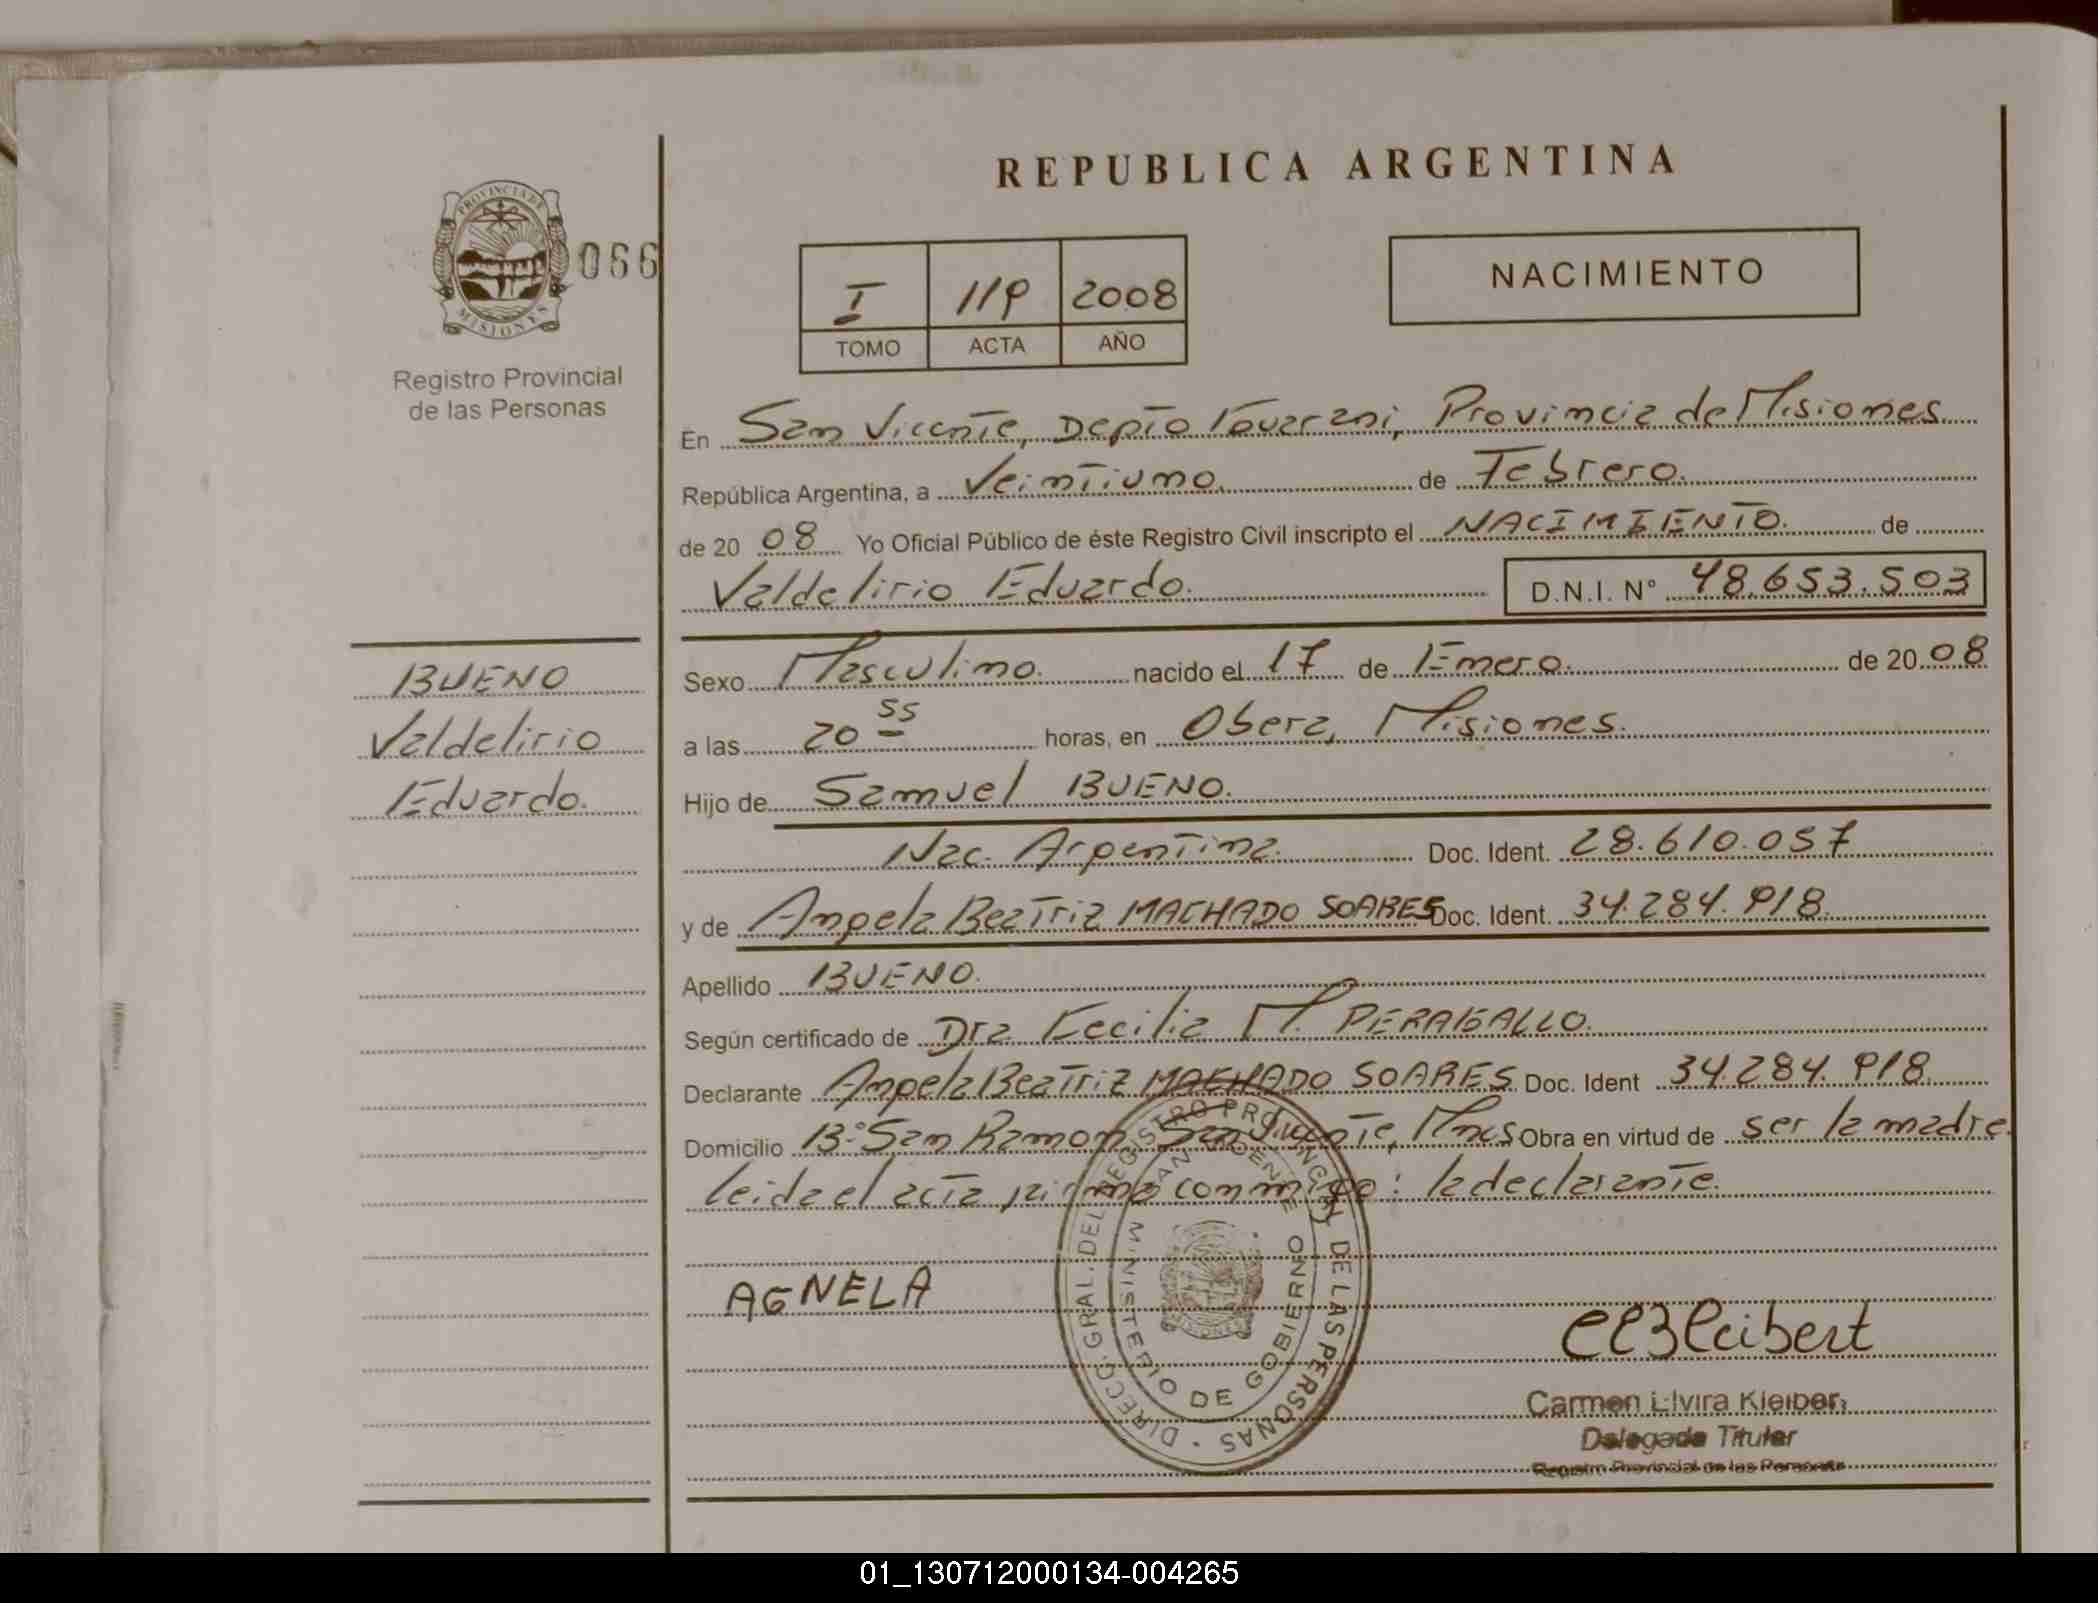 REPUBLICA ARGENTINA
PROVINCIA DE
MISIONES
066
Registro Provincial
de las Personas
I 119 2008
TOMO ACTA AÑO
NACIMIENTO
En San Vicente, Depto Guarani, Provincia de Misiones
República Argentina, a Veintiuno. de Febrero.
de 20 08 Yo Oficial Público de éste Registro Civil inscripto el NACIMIENTO. de
Valdelirio Eduardo. D.N.I. N° 48.653.503
BUENO
Valdelirio
Eduardo.
Sexo Masculino. nacido el 17 de Enero. de 20 08
a las 20 55 horas, en Obera, Misiones.
Hijo de Samuel BUENO.
Nac. Argentina. Doc. Ident. 28.610.057
y de Angela Beatriz MACHADO SOARES Doc. Ident. 34.284.918.
Apellido BUENO.
Según certificado de Dra Cecilia M. PERAGALLO.
Declarante Angela Beatriz MACHADO SOARES Doc. Ident 34.284.918.
Domicilio B° San Ramon San Vicente, Mnes Obra en virtud de ser la madre.
leida el acta, firma conmigo: la declarante.
AGNELA
DIRECC. GRAL. DEL REGISTRO PROVINCIAL DE LAS PERSONAS
MINISTERIO DE GOBIERNO
SAN VICENTE
MISIONES
Carmen Elvira Kleibert
Delegada Titular
Registro Provincial de las Personas
01_130712000134-004265